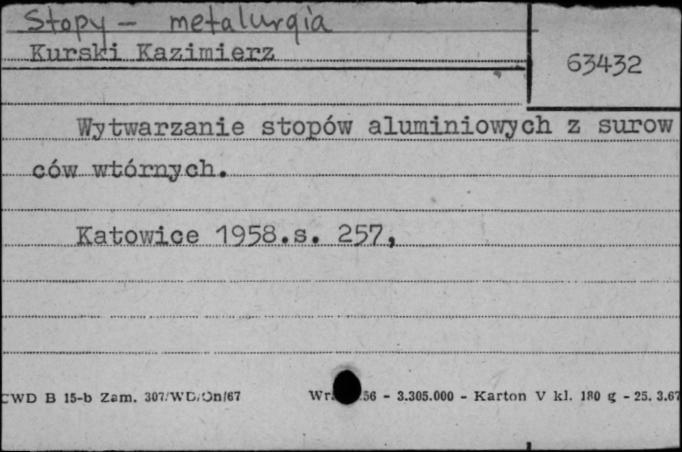 Stopy - metalurgia
Kurski Kazimierz
63432
Wytwarzanie stopów aluminiowych z surow
ców wtórnych.
Katowice 1958.s. 257,
CWD B 15-b Zam. 307/WD/On/67
56 - 3.305.000 - Karton V kl. 180 g - 25. 3.67